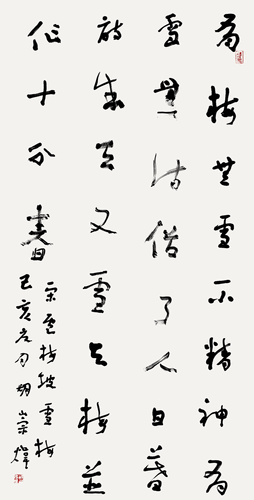 有梅无雪不精神有
雪無诗俗了人日暮
诗成天又雪与梅並
作十分春
宋卢梅坡雪梅
己亥 月胡崇煒